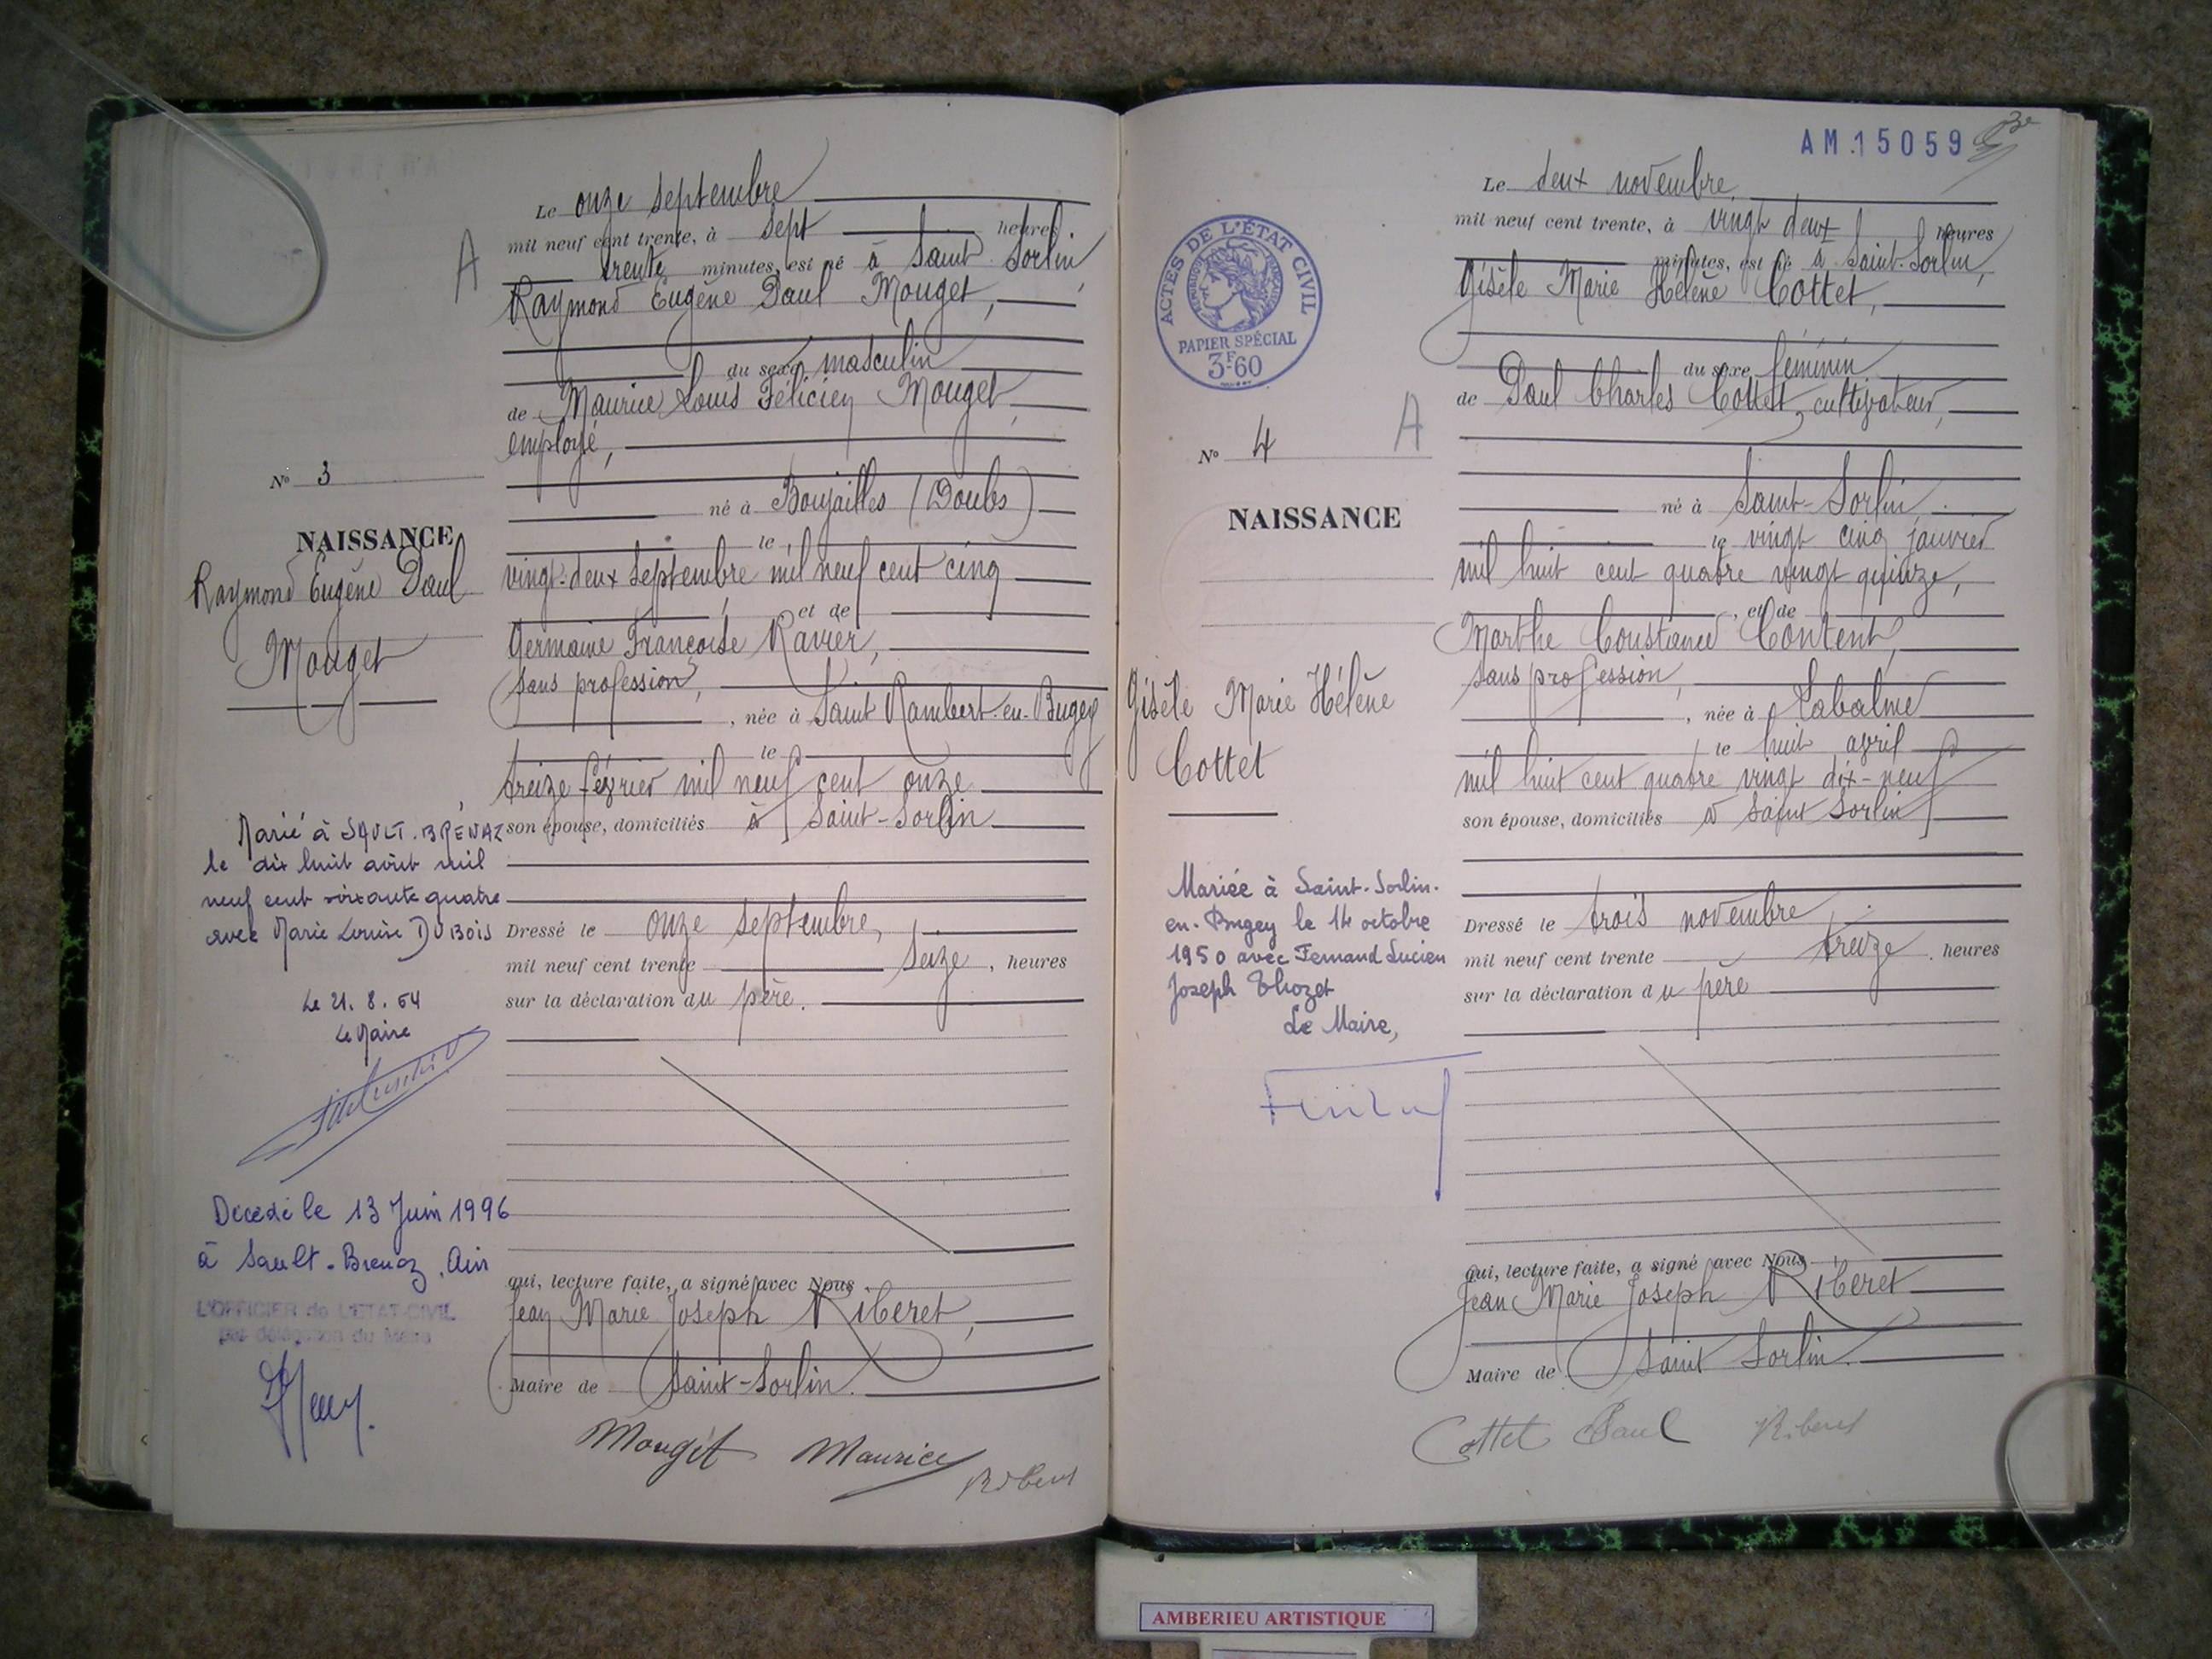 Le onze septembre
mil neuf cent trente, à sept heures
trente minutes, est né à Saint Sorlin,
A
Raymond Eugène Paul Mouget,
du sexe masculin
de Maurice Louis Félicien Mouget,
employé,
né à Boujailles (Doubs)
le
vingt-deux septembre mil neuf cent cinq
et de
Germaine Françoise Ravier,
sans profession,
, née à Saint Rambert-en-Bugey
le
treize février mil neuf cent onze
son épouse, domiciliés à Saint-Sorlin
Dressé le onze septembre,
mil neuf cent trente seize, heures
sur la déclaration du père.
qui, lecture faite, a signé avec Nous
Jean Marie Joseph Riberet,
Maire de Saint-Sorlin.
Mouget Maurice
Riberet
N° 3
NAISSANCE
Raymond Eugène Paul
Mouget
Marié à SAULT-BRENAZ
le dix huit août mil
neuf cent soixante quatre
avec Marie Louise DUBOIS
Le 21.8.64
Le Maire
Décédé le 13 Juin 1996
à Sault-Brenaz, Ain
L'OFFICIER de L'ETAT-CIVIL
par délégation du Maire
AM 15059
Le deux novembre
mil neuf cent trente, à vingt deux heures
minutes, est né à Saint-Sorlin,
Gisèle Marie Hélène Cottet,
du sexe féminin
de Paul Charles Cottet, cultivateur,
né à Saint-Sorlin
le vingt cinq janvier
mil huit cent quatre vingt quinze,
, et de
Marthe Constance Content,
sans profession,
, née à Labalme
le huit avril
mil huit cent quatre vingt dix-neuf
son épouse, domiciliés à Saint Sorlin
Dressé le trois novembre
mil neuf cent trente treize, heures
sur la déclaration du père
qui, lecture faite, a signé avec Nous
Jean Marie Joseph Riberet
Maire de Saint Sorlin.
Cottet Paul Riberet
ACTES DE L'ÉTAT CIVIL
RÉPUBLIQUE FRANÇAISE
PAPIER SPÉCIAL
3F60
N° 4
A
NAISSANCE
Gisèle Marie Hélène
Cottet
Mariée à Saint-Sorlin-
en-Bugey le 14 octobre
1950 avec Fernand Lucien
Joseph Thozet
Le Maire,
AMBERIEU ARTISTIQUE